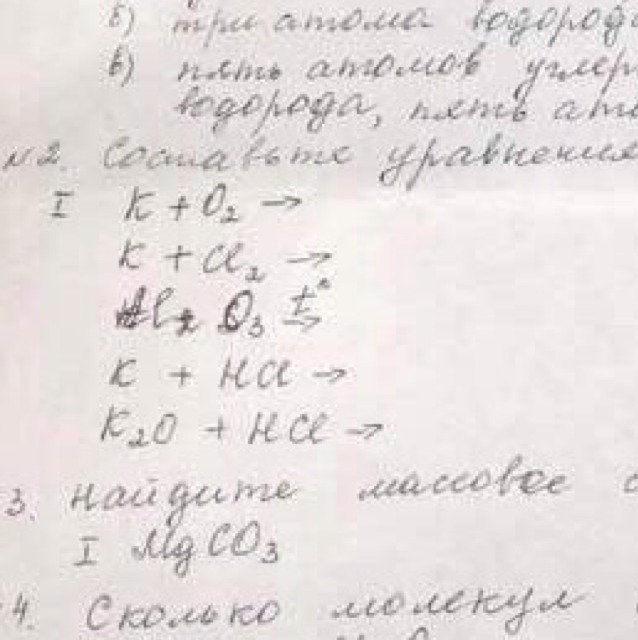 б) три атома водорода
в) пять атомов
водорода, пять
№2. Составьте уравнения
I K + O₂ →
K + Cl₂ →
Al₂ O₃ t° →
K + HCl →
K₂O + HCl →
3. Найдите массовое
I MgCO₃
4. Сколько молекул